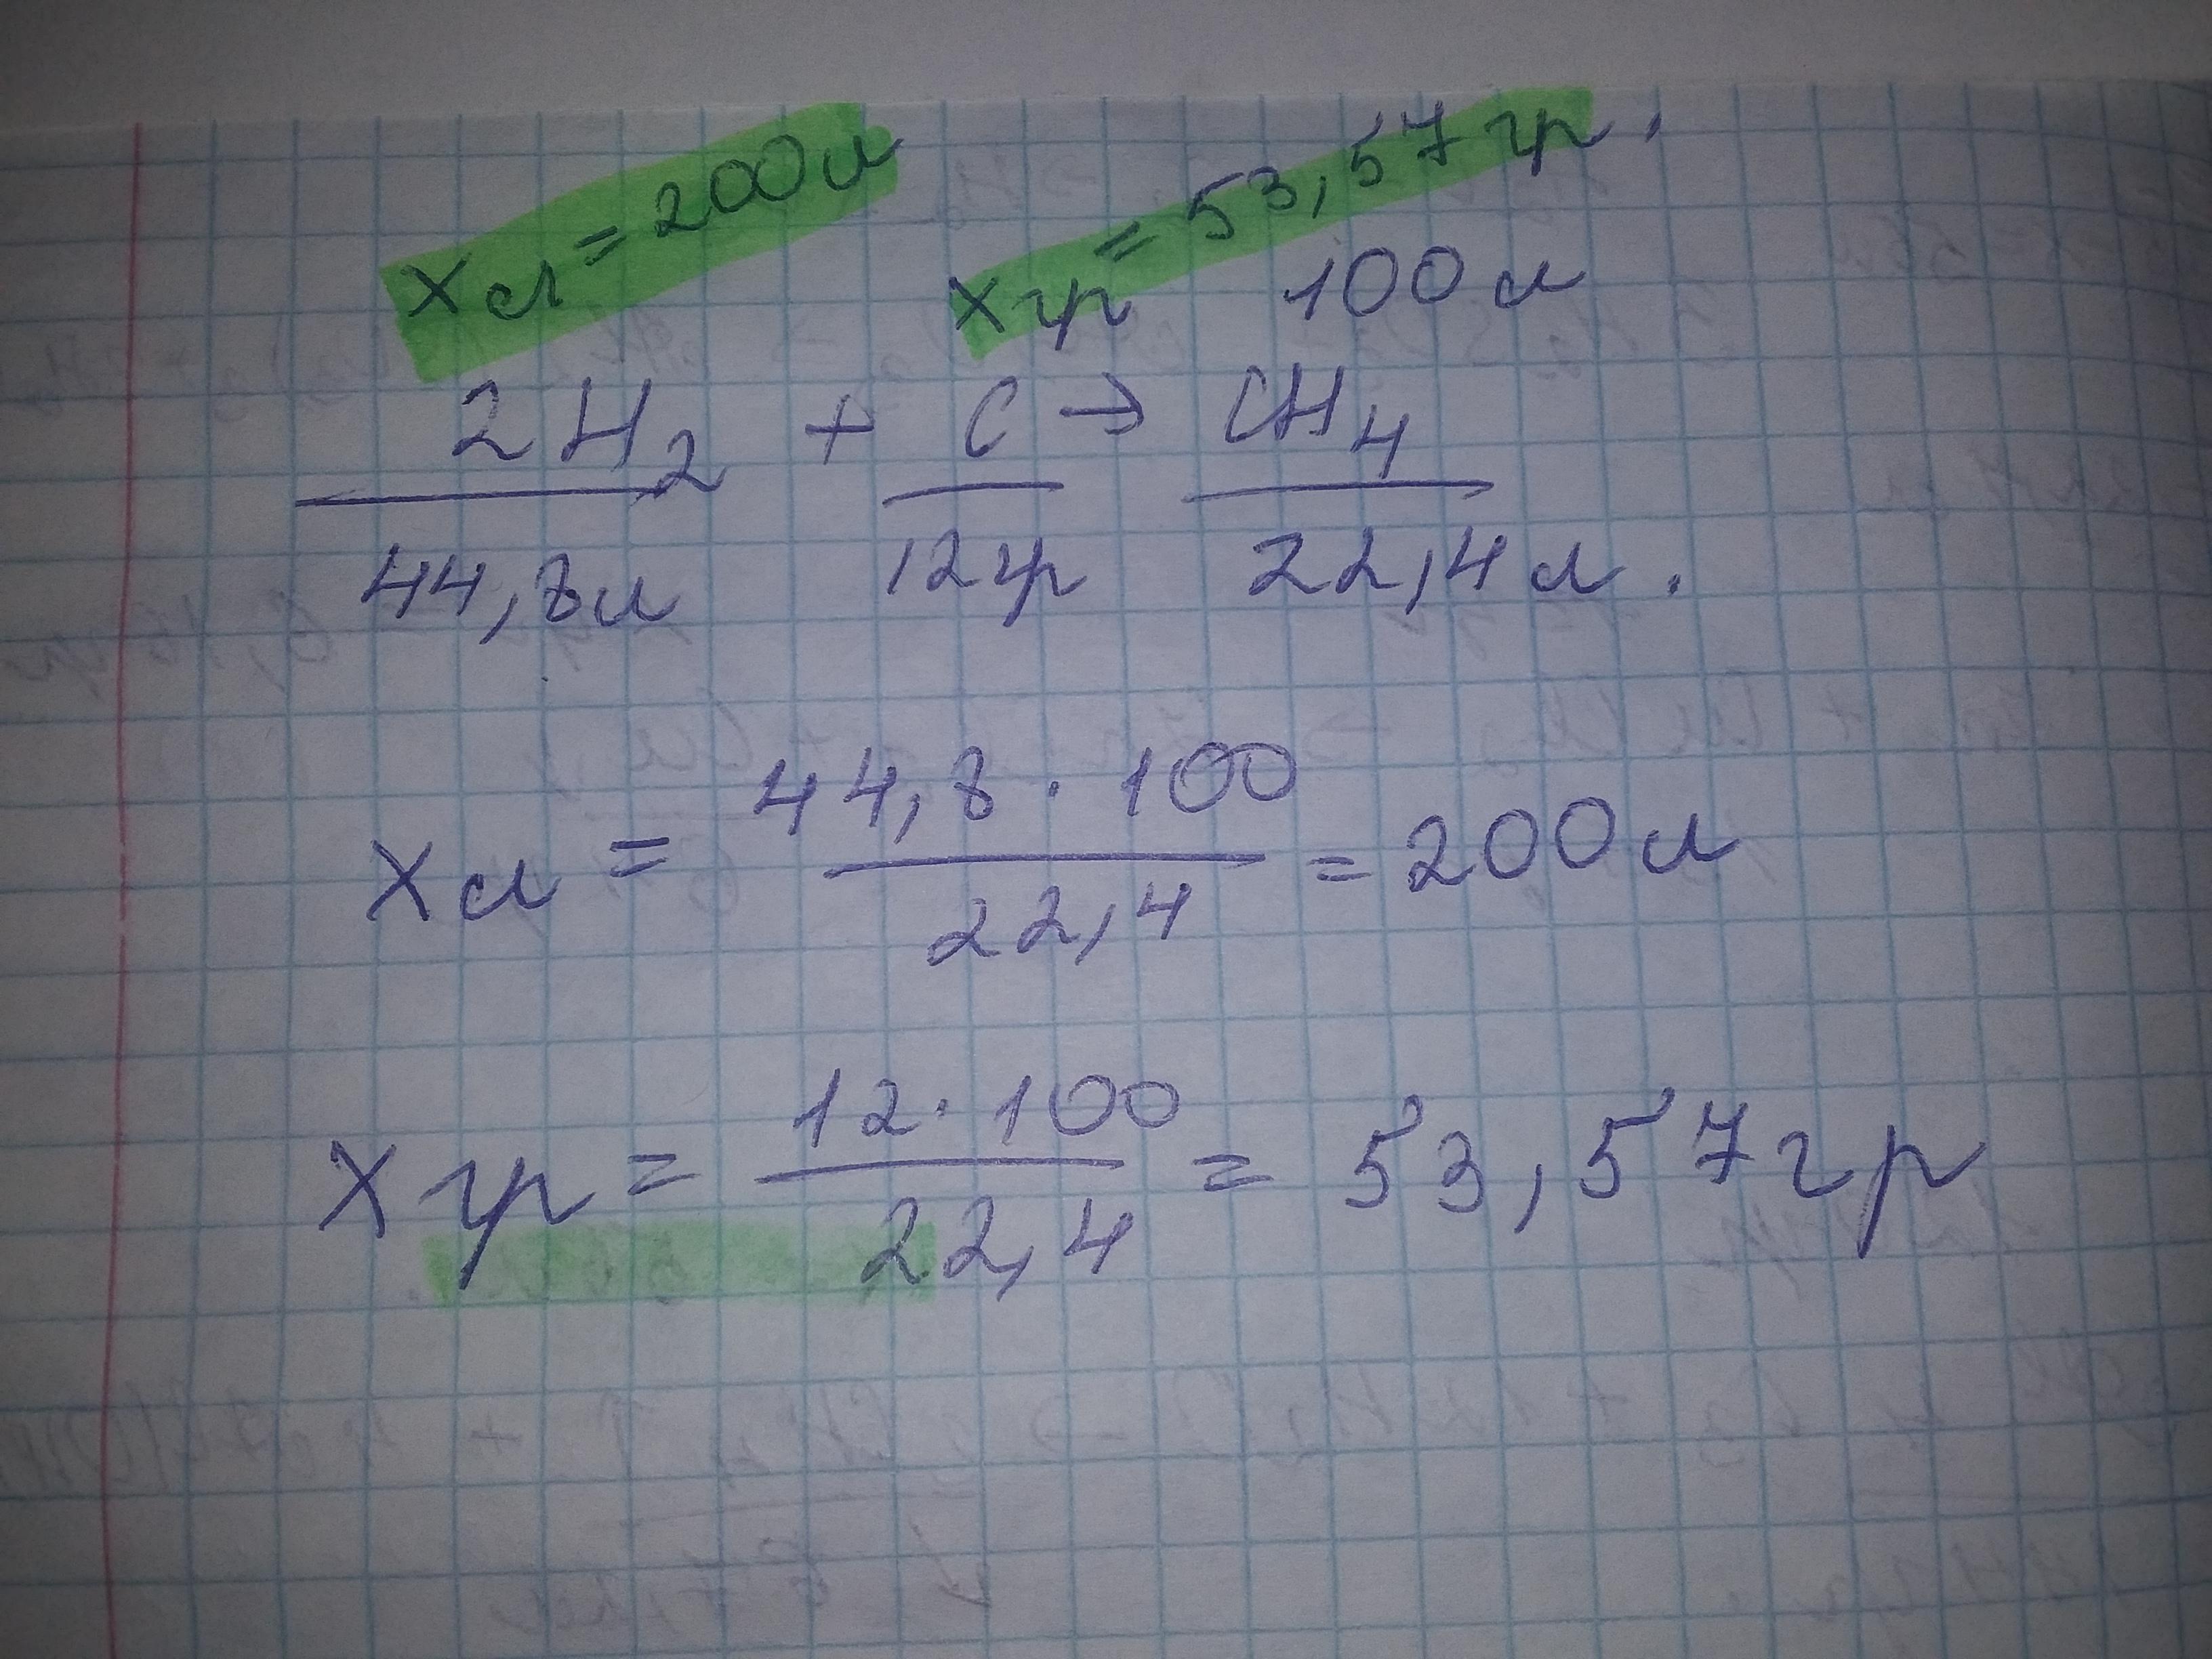 x л = 200 л x гр = 53,57 гр.
100 л
2H₂ + C → CH₄
44,8 л 12 гр 22,4 л.
x л = 44,8 · 100 / 22,4 = 200 л
x гр = 12 · 100 / 22,4 = 53,57 гр